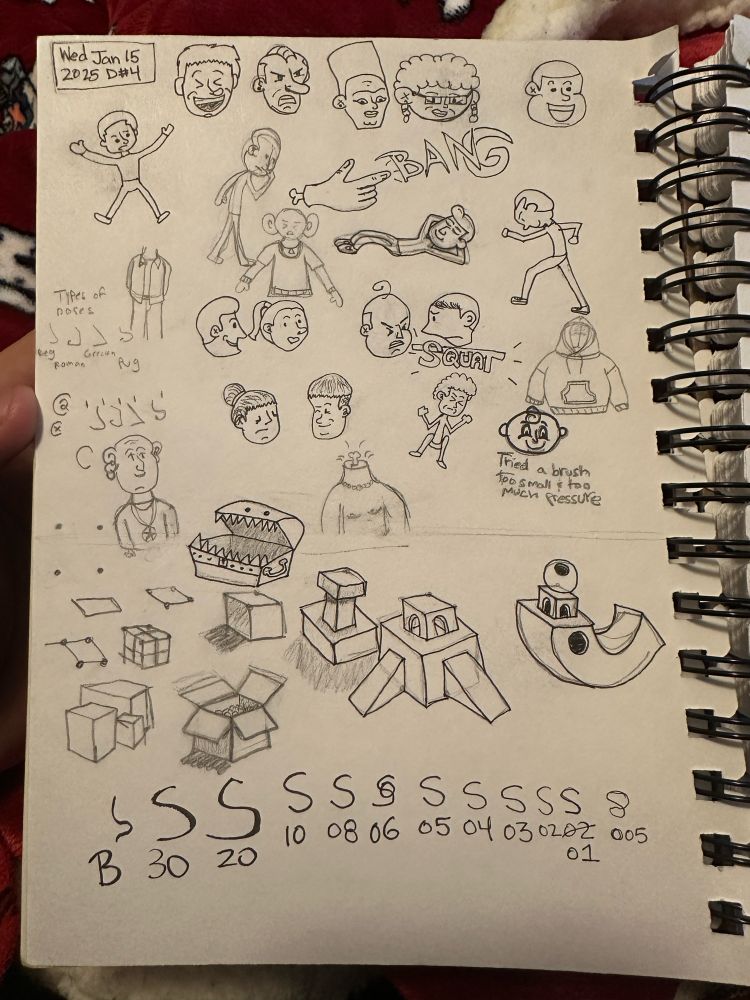 Wed Jan 15
2025 D#4
BANG
Types of
noses
Reg
Roman
Grecian
Pug
SQUAT
Tried a brush
too small & too
much pressure
C
S S S S S S S S S S S 8
B 30 20 10 08 06 05 04 03 02 02 005
01